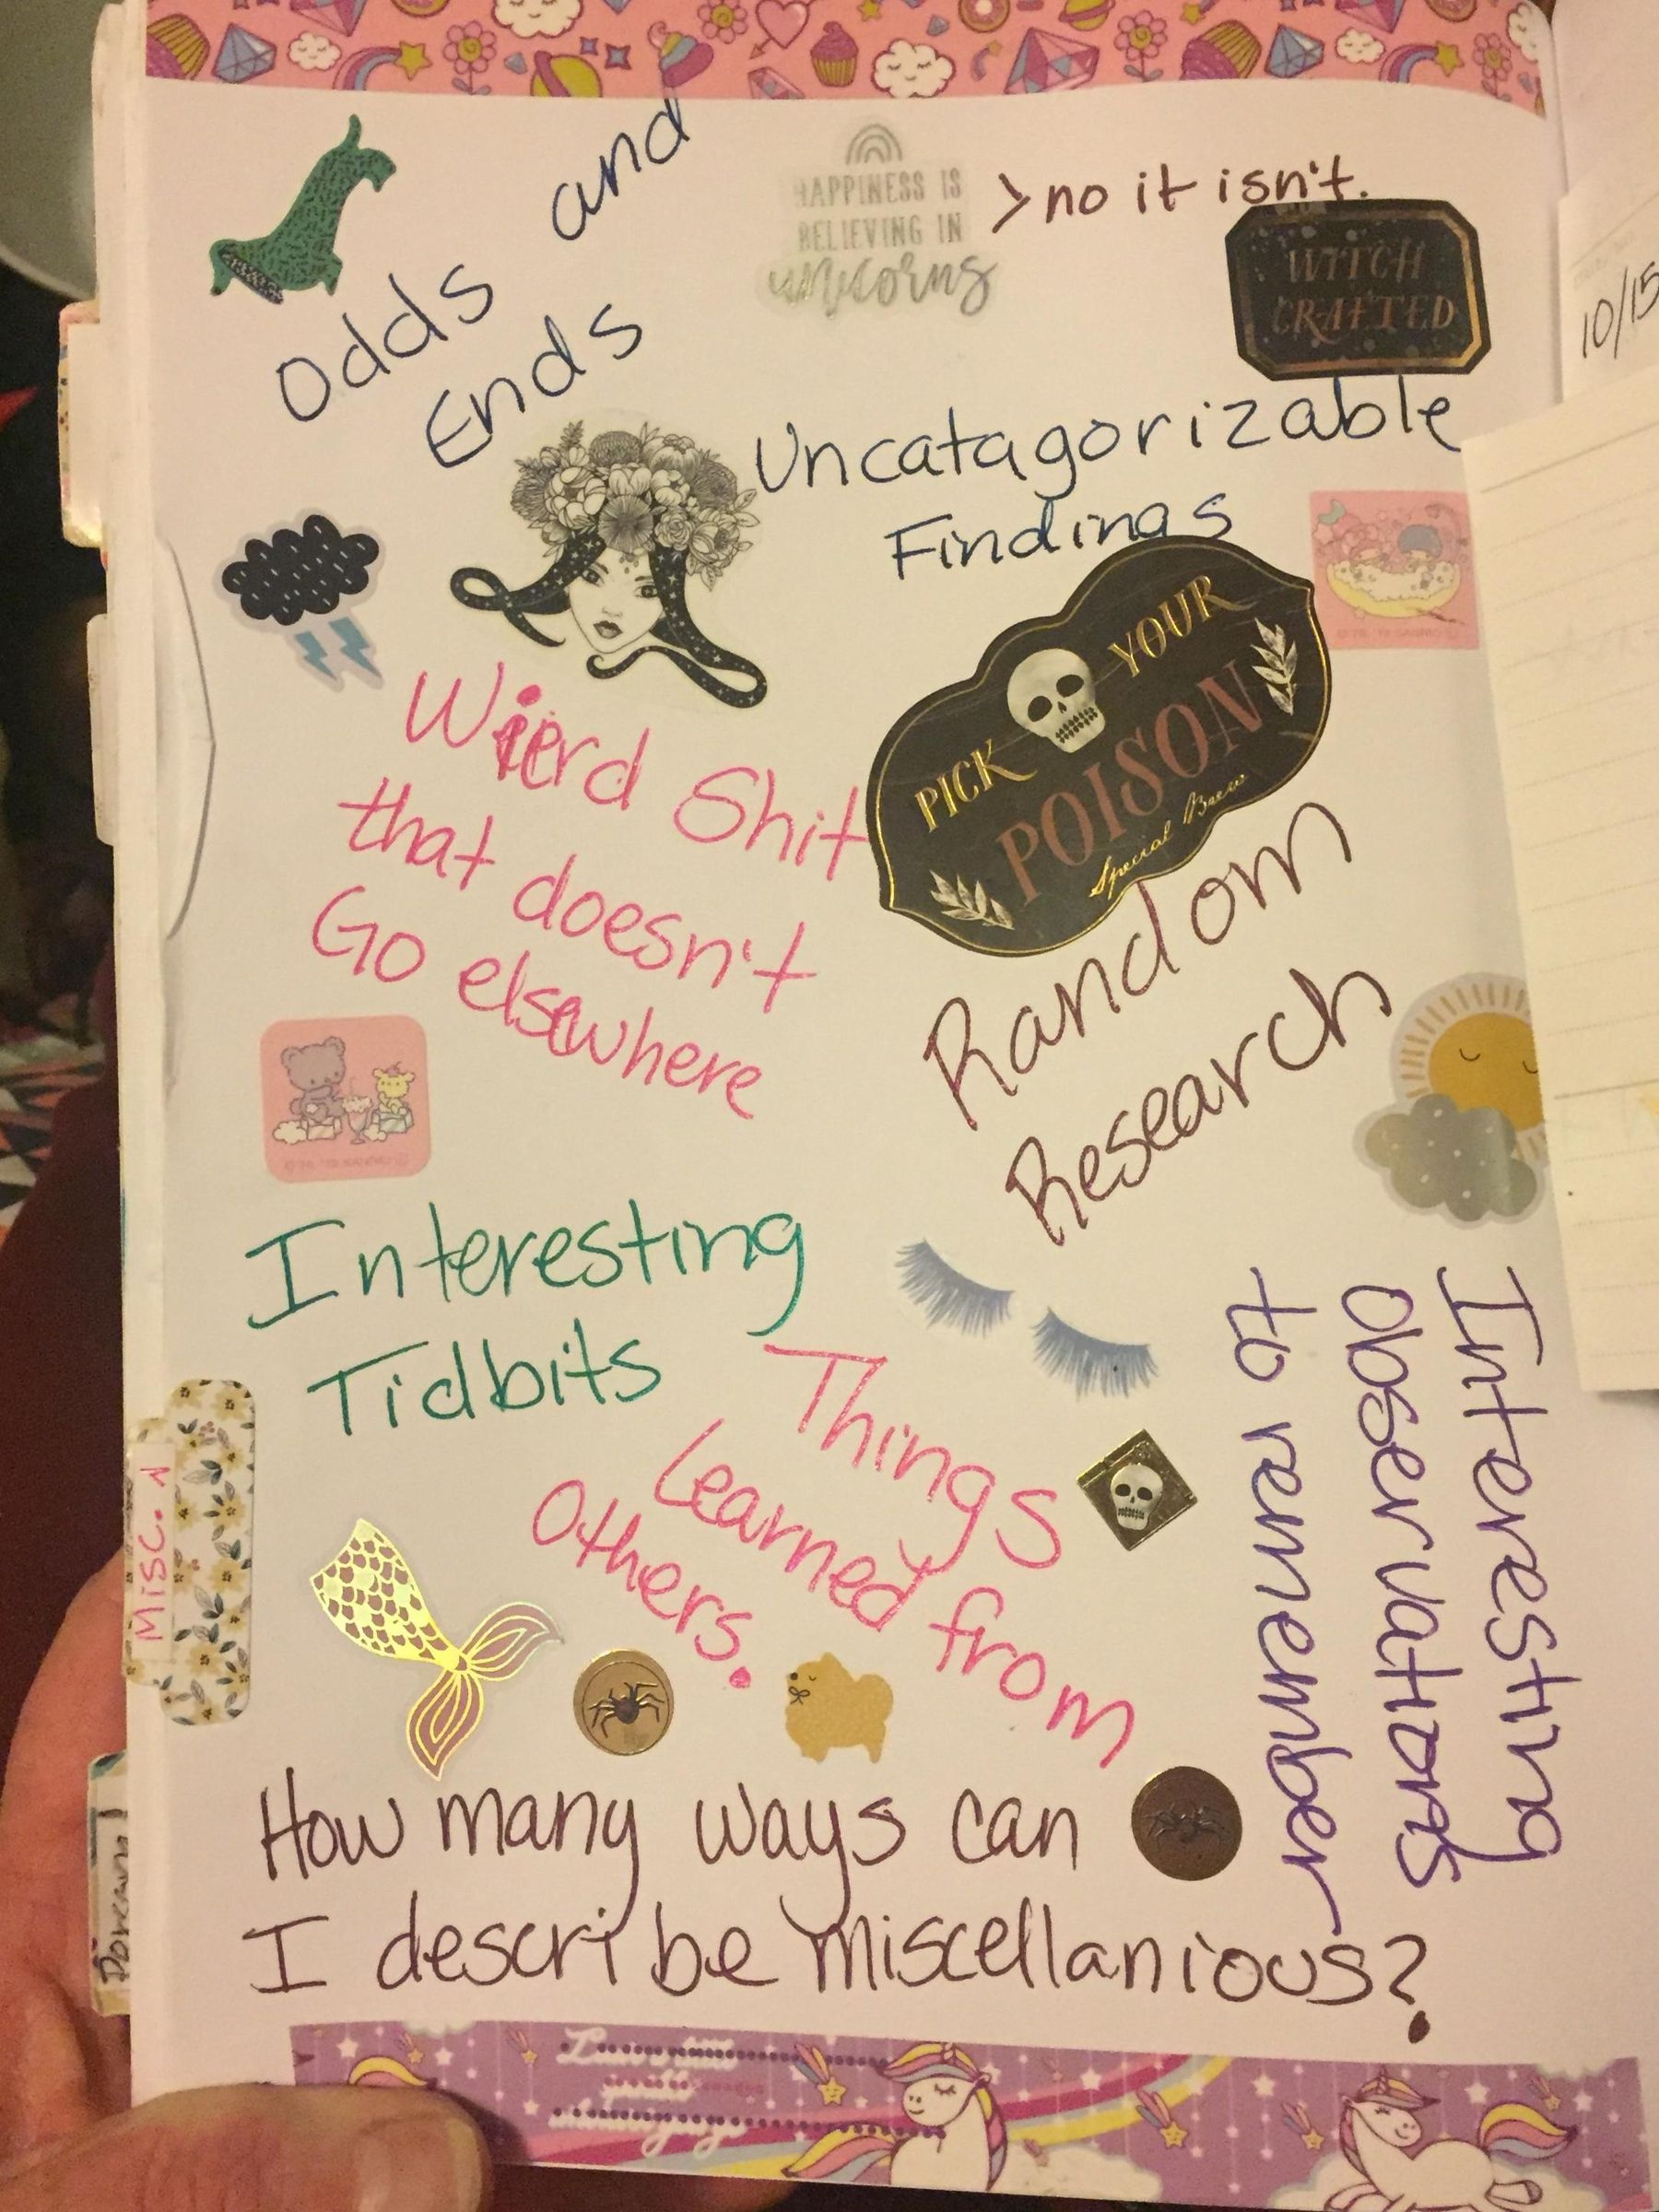 Odds and
Ends
HAPPINESS IS
BELIEVING IN
unicorns
>no it isn't.
WITCH
CRAFTED
10/15
Uncatagorizable
Findings
PICK YOUR
POISON
Special Brew
Wierd Shit
that doesn't
Go elsewhere
Random
Research
Interesting
Tidbits
Things
Learned from
Others.
Interesting
Observations
to remember
Misc.
How many ways can
I describe miscellanious?